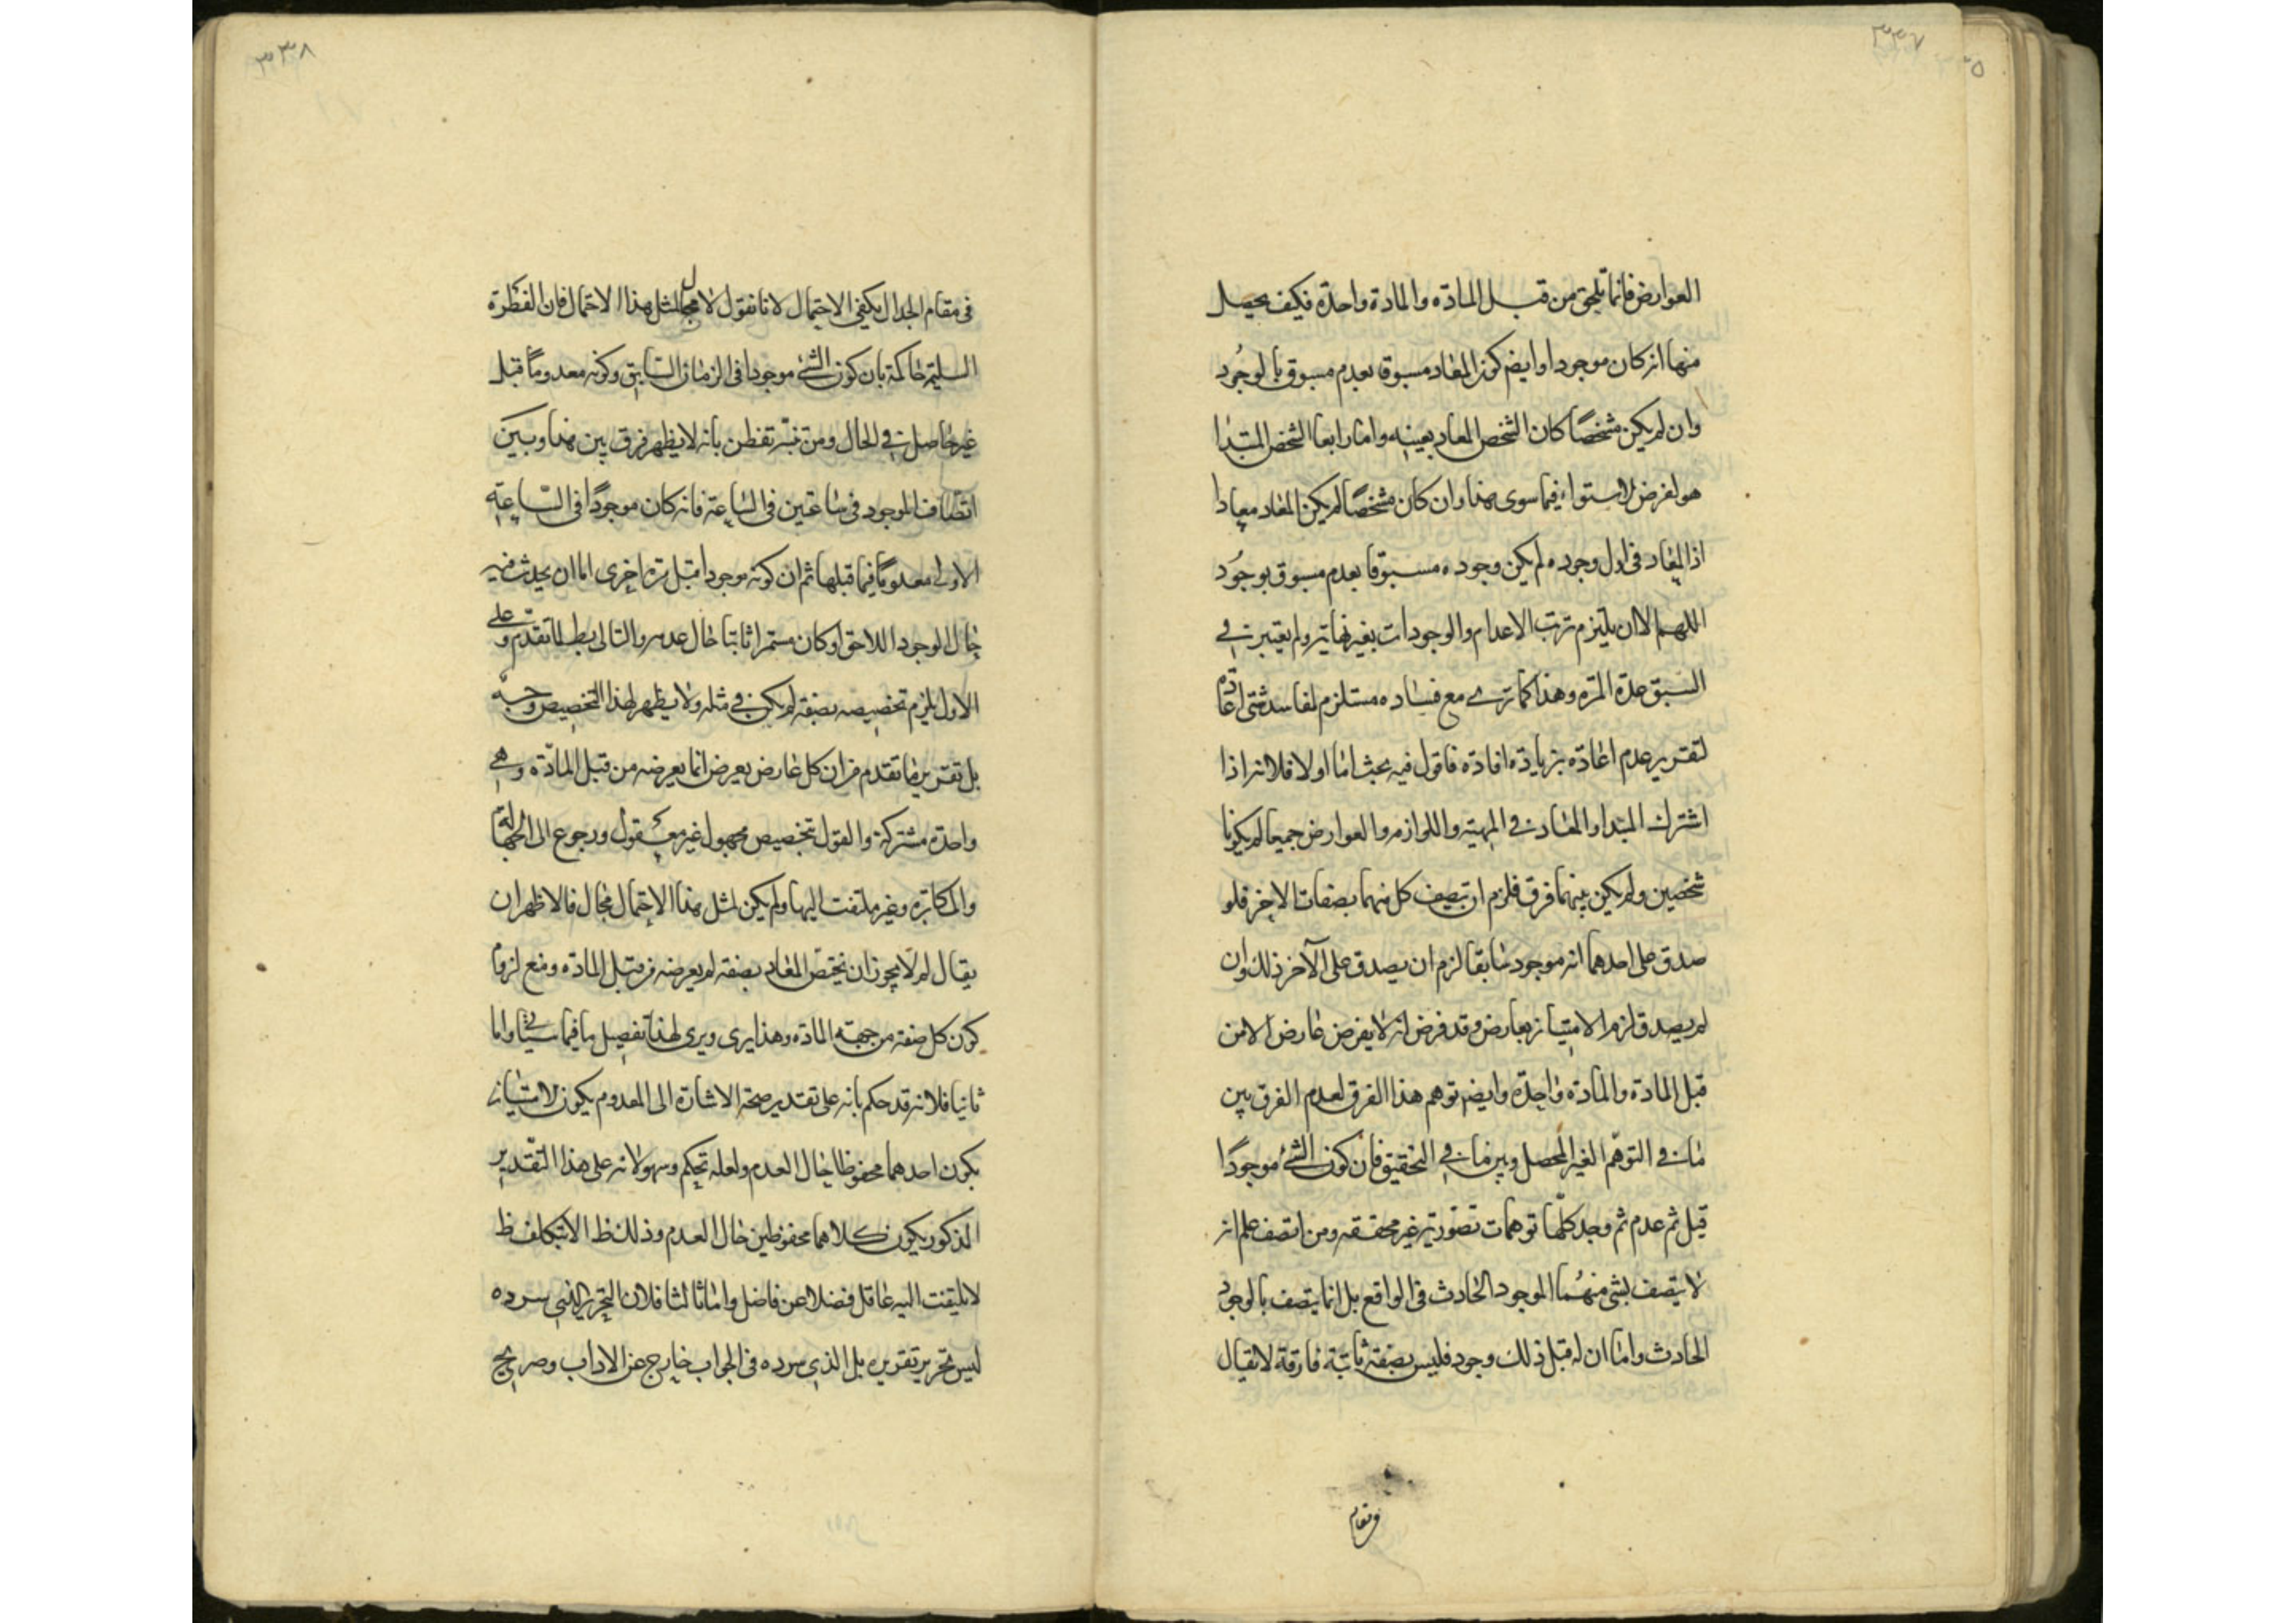 ٣٣٧
العوارض فانما تلحق من قبل المادّه والمادة واحدة فكيف يحصل
منها انه كان موجودا وايضم كون المعاد مسبوقا بعدم مسبوق بالوجُود
وان لم يكن مشخصًا كان الشخص المعاد بعينه واما رابعا الشخص المبتدا
هو لفرض الاستواء فيما سوى هذا وان كان مشخصًا لم يكن المعاد معادا
اذ المعاد فى اول وجوده لم يكن وجوده مسبوقا بعدم مسبوق بوجُود
اللهم الا ان يلتزم ترتب الاعدام والوجودات بغير نهاية ولم يعتبر فى
السبق هذه المرة وهذا كما ترى مع فساده مستلزم لمفاسد شتى
لتقرير عدم اعادة بزيادة افادة فاقول فيه بحث اما اولا فلانه اذا
اشترك المبتدا والمعاد فى المهية واللوازم والعوارض جميعا لم يكونا
شخصين ولم يكن بينهما فرق فلزم ان تتصف كل منهما بصفات الاخر فلو
صدق على احدهما انه موجود سابقا لزم ان يصدق على الآخر ذلك وان
لم يصدق لزم الامتياز بعارض وقد فرض انه لا يفرض عارض الا من
قبل المادة والمادة واحدة وايضم توهم هذا الفرق لعدم الفرق بين
ما فى التوهّم الغير المحصل وبين ما فى التحقيق فان كون الشئ موجودًا
قبل ثم عدم ثم وجد كلّها توهمات تصّورية غير محققه ومن اتصف علم انه
لا يتصف بشئ منهُما الموجود الحادث فى الواقع بل انما يتصف بالوجود
الحادث واما ان له قبل ذلك وجود فليس بصفة ثابتة فارقة لا يقال
فى مقام
٣٣٨
فى مقام الجدال يكفى الاحتمال لانا نقول لا مجال لمثل هذا الاحتمال فان الفطرة
السليمة حاكمة بان كون الشئ موجودا فى الزمان السابق وكونه معدوماً قبل
غير حاصل فى الحال ومن تنبّه تفطن بانه لا يظهر فرق بين هذا وبين
اتصاف الموجود فى ساعتين فى الساعة فانه كان موجودًا فى السّاعة
الاولى معدومًا فيما قبلها ثم ان كونه موجودا قبل مرة اخرى اما ان يحدث فيه
حال الوجود اللاحق او كان مستمرا ثابتا حال عدمه والتالى بط لما تقدّم وعلى
الاول يلزم تخصيصه بصفة لم يكن فى مثله ولا يظهر لهذا التخصيص وجه
بل تقرير ما تقدم من ان كل عارض يعرض انما يعرضه من قبل المادّه وهى
واحدة مشتركة والقول بتخصيص مجهول غير معقول ورجوع الى الجهالة
والمكابرة وغير ملتفت اليها ولم يكن لمثل هذا الاحتمال مجال فالاظهر ان
يقال لم لا يجوز ان يختص المعاد بصفة لم يعرضه من قبل المادّه ومنع لزوم
كون كل صفة من جهة المادّه وهذا يرى ويرى لهذا تفصيل ما فيما سيأتى واما
ثانيا فلانه قد حكم بانه على تقدير صحة الاشارة الى المعدوم يكون الامتياز
بكون احدهما محفوظا حال العدم ولعله تحكم وسهو لانه على هذا التقدير
المذكور يكون كلاهما محفوظين حال العدم وذلك ظ الا بتكلف ظ
لا يلتفت اليه عاقل فضلا عن فاضل واما ثالثا فلان التحرير الذى سرده
ليس تحرير تقريره بل الذى سرده فى الجواب خارج عن الاداب وصريح